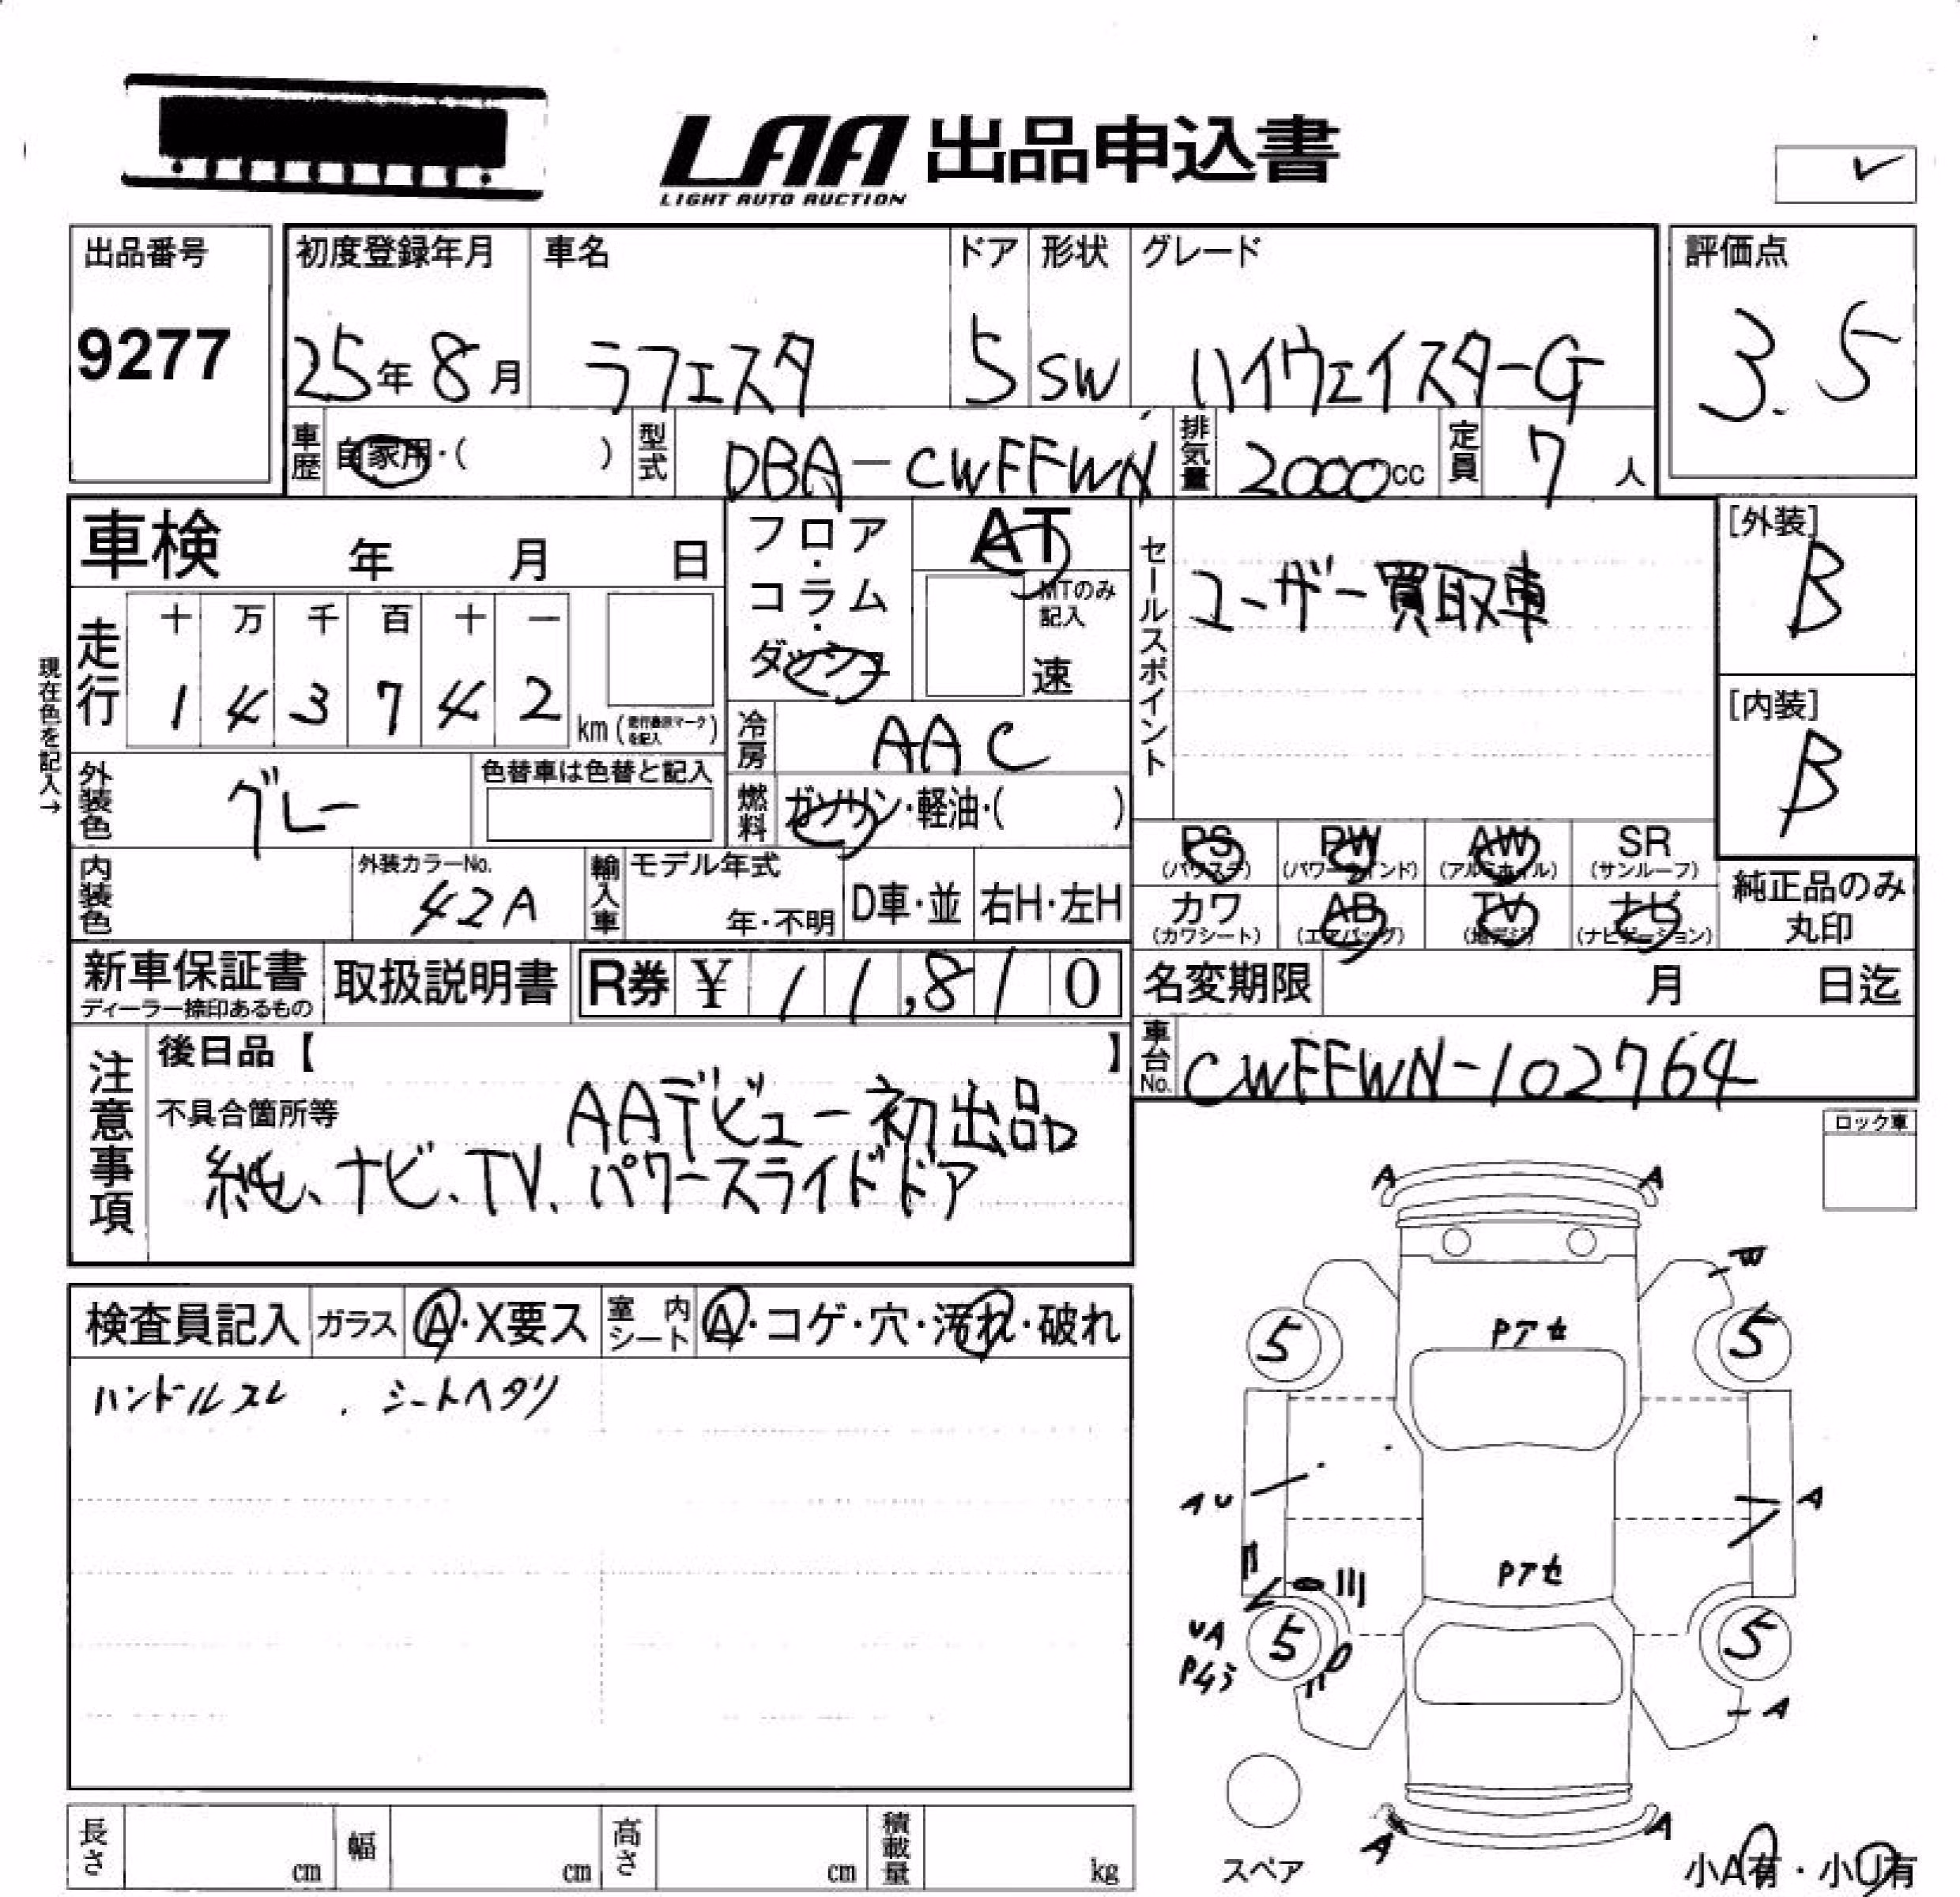 LAA 出品申込書
LIGHT AUTO AUCTION
出品番号 初度登録年月 車名 ドア 形状 グレード 評価点
9277 25年8月 ラフェスタ 5 SW ハイウェイスターG 3.5
車歴 自家用・( ) 型式 DBA-CWFFWN 排気量 2000cc 定員 7人
車検 年 月 日
フロア・コラム・ダッシュ
AT
MTのみ記入
速
セールスポイント
ユーザー買取車
[外装]
B
[内装]
B
現在色を記入→
走行 十 万 千 百 十 一
1 4 3 7 4 2 km (走行表示マークを記入)
冷房 AAC
外装色 グレー 色替車は色替と記入
燃料 ガソリン・軽油・( )
PS (パワステ) PW (パワーウインド) AW (アルミホイル) SR (サンルーフ)
カワ (カワシート) AB (エアバッグ) TV (地デジ) ナビ (ナビゲーション)
純正品のみ丸印
内装色 外装カラーNo. 42A 輸入車 モデル年式 年・不明 D車・並 右H・左H
新車保証書 ディーラー捺印あるもの 取扱説明書 R券 ¥11,810
名変期限 月 日迄
車台No. CWFFWN-102764
注意事項
後日品【 】
不具合箇所等 AAデビュー初出品
純、ナビ、TV、パワースライドドア
ロック車
検査員記入 ガラス A・X要ス 室内シート A・コゲ・穴・汚れ・破れ
ハンドルスレ . シートヘタリ
A A
W
5 Pアセ 5
AU A
Pアセ
UA 5 5
A
A A
スペア
小A有・小U有
長さ cm 幅 cm 高さ cm 積載量 kg